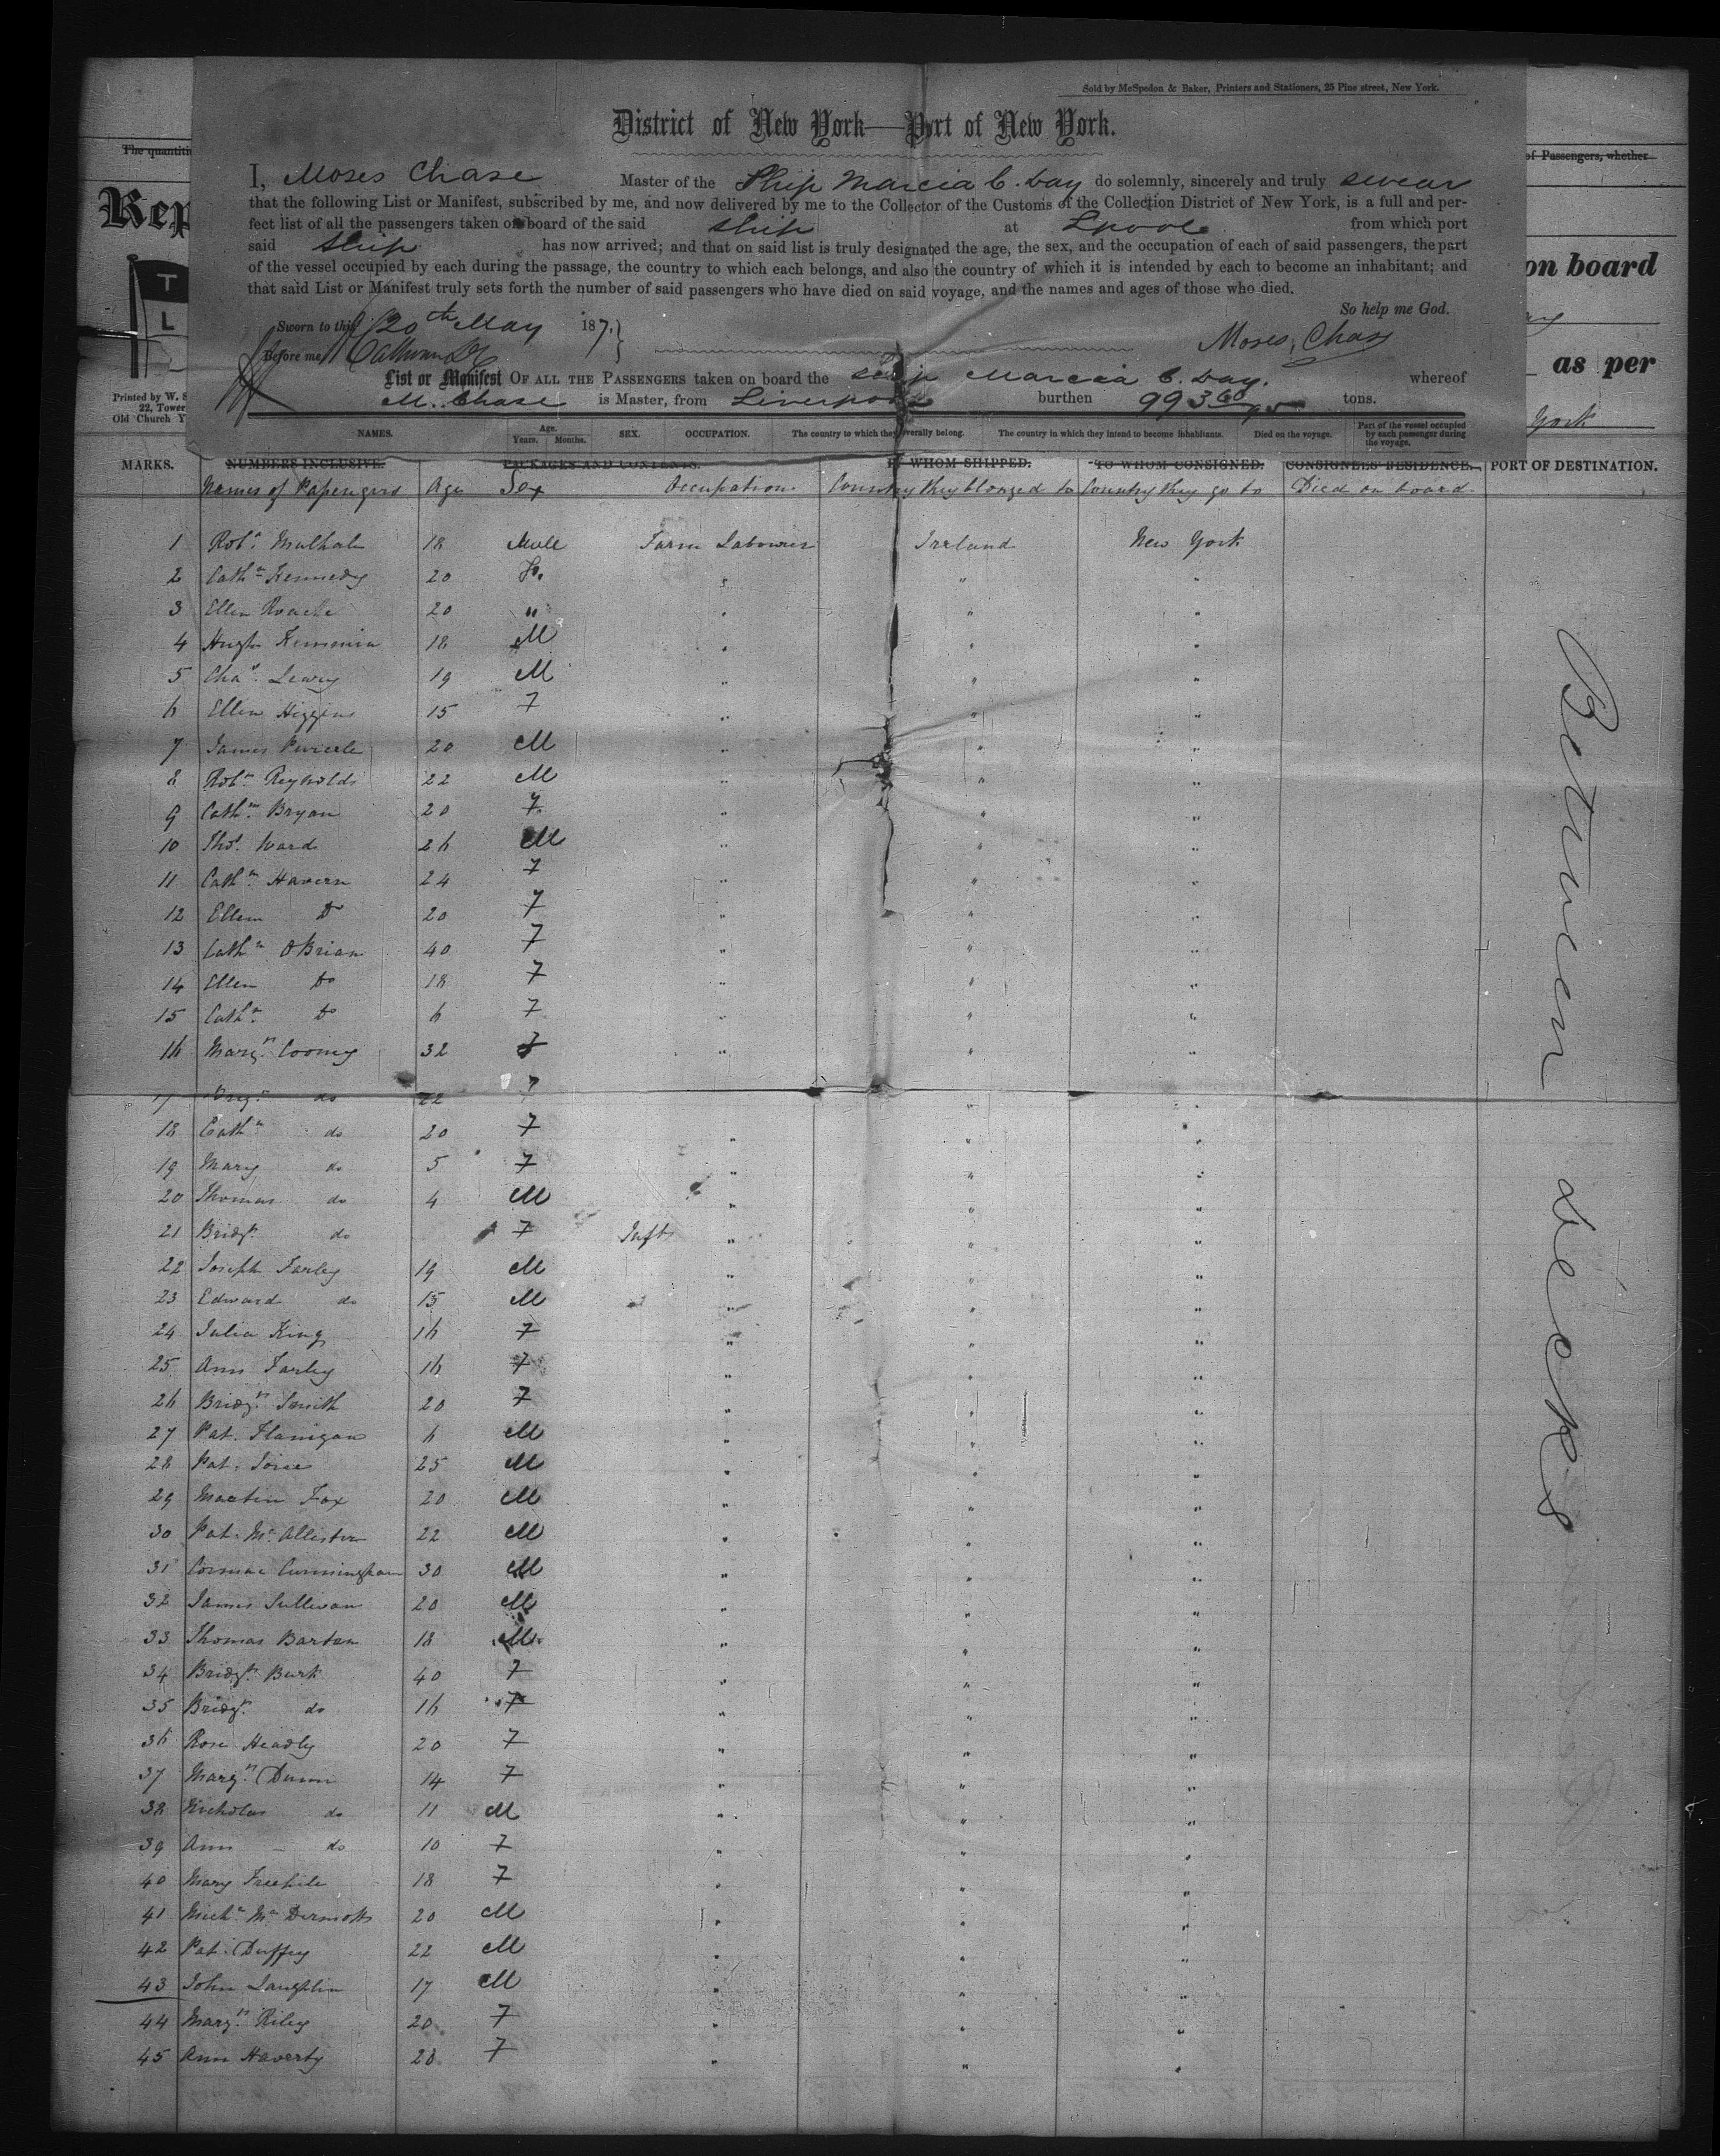 Sold by McSpedon & Baker, Printers and Stationers, 25 Pine street, New York.
District of New York—Port of New York.
I, Moses Chase Master of the Ship Marcia C. Day do solemnly, sincerely and truly swear
that the following List or Manifest, subscribed by me, and now delivered by me to the Collector of the Customs of the Collection District of New York, is a full and per-
fect list of all the passengers taken on board of the said ship at Lpool from which port
said ship has now arrived; and that on said list is truly designated the age, the sex, and the occupation of each of said passengers, the part
of the vessel occupied by each during the passage, the country to which each belongs, and also the country of which it is intended by each to become an inhabitant; and
that said List or Manifest truly sets forth the number of said passengers who have died on said voyage, and the names and ages of those who died.
So help me God.
Sworn to this 20th May 187.}
Moses, Chase
Before me
List or Manifest OF ALL THE PASSENGERS taken on board the Ship Marcia C. Day. whereof
M. Chase is Master, from Liverpool burthen 993 tons.
NAMES. Age. Years. Months. SEX. OCCUPATION. The country to which they severally belong. The country in which they intend to become inhabitants. Died on the voyage. Part of the vessel occupied by each passenger during the voyage.
The quantiti
of Passengers, whether
Rep
T
L
on board
as per
York
Printed by W. S
22, Tower
Old Church Y
MARKS. NUMBERS INCLUSIVE. PACKAGES AND CONTENTS. BY WHOM SHIPPED. TO WHOM CONSIGNED. CONSIGNEES RESIDENCE. PORT OF DESTINATION.
Names of Passengers Age Sex Occupation Country they blonged to Country they go to Died on board
1 Robt. Mulhale 18 Male Farm Labourer Ireland New York
2 Cathn Kennedy 20 F. " " "
3 Ellen Roache 20 " " " "
4 Hugh 18 M " " "
5 Chas. Leary 19 M " " "
6 Ellen Higgins 15 F " " "
7 James 20 M " " "
8 Robt. Reynolds 22 M " " "
9 Cathn Bryan 20 F. " " "
10 Thos. Ward 26 M " " "
11 Cathn Havern 24 F " " "
12 Ellen Do 20 F " " "
13 Cathn OBrian 40 F " " "
14 Ellen Do 18 F " " "
15 Cathn Do 6 F " " "
16 Margt. Cooney 32 F " " "
17 do 22 F " "
18 Cathn do 20 F " " "
19 Mary do 5 F " " "
20 Thomas do 4 M " " "
21 Bridgt. do F Inft " " "
22 Joseph Farley 19 M " " "
23 Edward do 15 M " " "
24 Julia King 16 F " " "
25 Ann Farley 16 F " " "
26 Bridgt. Smith 20 F " " "
27 Pat. Flanigan 6 M " " "
28 Pat. Joice 25 M " " "
29 Martin Fox 20 M " " "
30 Pat. Mc Allister 22 M " " "
31 Cormac Cunningham 30 M " " "
32 James Sullivan 20 M " " "
33 Thomas Barton 18 M " " "
34 Bridgt. Burk 40 F " " "
35 Bridgt. do 16 F " " "
36 Rose Headly 20 F " " "
37 Margt. Dunn 14 F " " "
38 Nicholas do 11 M " " "
39 Ann do 10 F " " "
40 Mary 18 F " " "
41 Michl. Mc Dermott 20 M " " "
42 Pat. Duffey 22 M " " "
43 John Laughlin 17 M " " "
44 Margt. Riley 20 F " " "
45 Ann Haverty 20 F " " "
Between decks